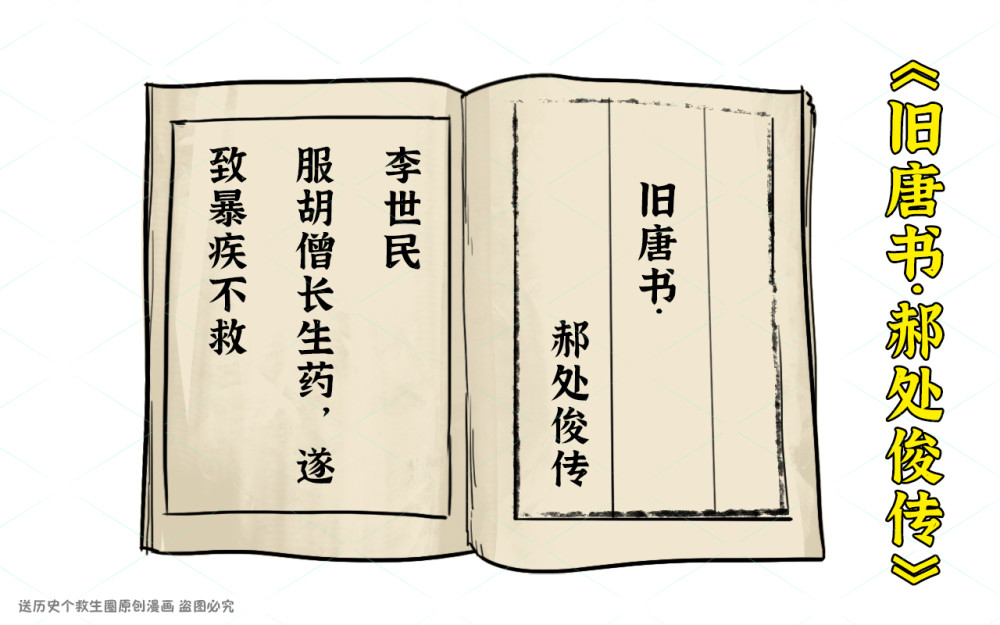 《旧唐书·郝处俊传》
旧唐书·
郝处俊传
李世民
服胡僧长生药，遂
致暴疾不救
送历史个救生圈原创漫画 盗图必究